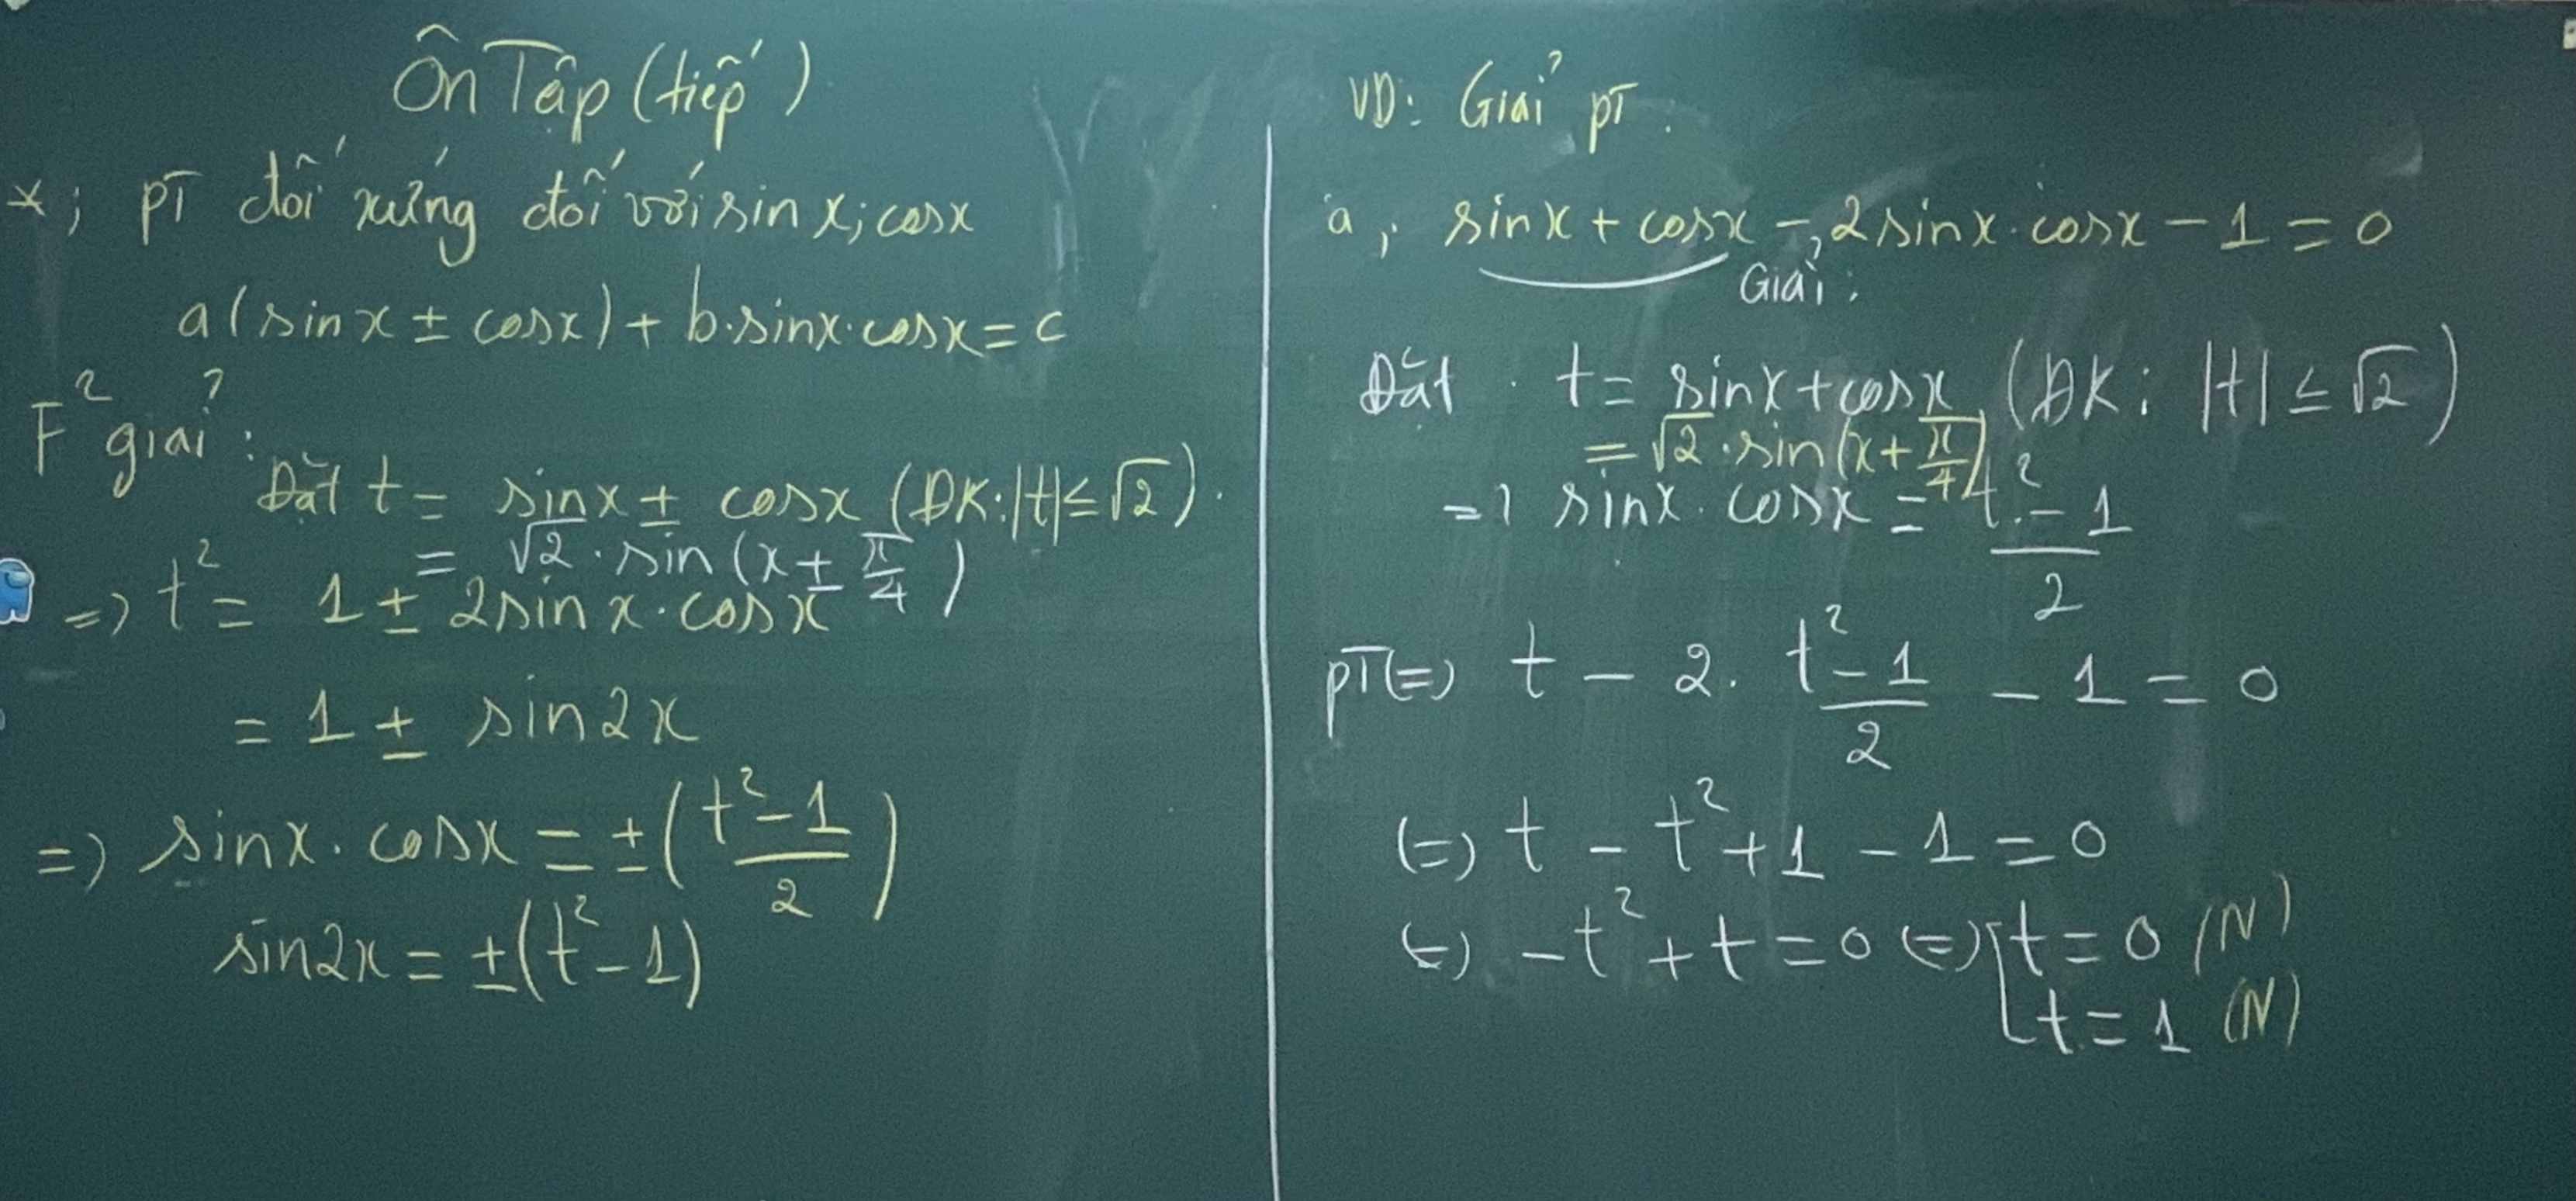 Ôn Tập (tiếp)
*; PT đối xứng đối với sin x; cosx
a(sinx ± cosx) + b.sinx.cosx = c
F² giải:
Đặt t = sinx ± cosx (ĐK: |t| ≤ √2).
= √2 . sin (x ± π/4)
=> t² = 1 ± 2sinx.cosx
= 1 ± sin2x
=> sinx.cosx = ±((t² - 1)/2)
sin2x = ±(t² - 1)
VD: Giải PT:
a, sinx + cosx - 2sinx.cosx - 1 = 0
Giải:
Đặt t = sinx + cosx (ĐK: |t| ≤ √2)
= √2 . sin(x + π/4)
=> sinx.cosx = (t² - 1)/2
PT(=) t - 2. (t² - 1)/2 - 1 = 0
(=) t - t² + 1 - 1 = 0
(=) -t² + t = 0 (=) [t = 0 (N)
t = 1 (N)